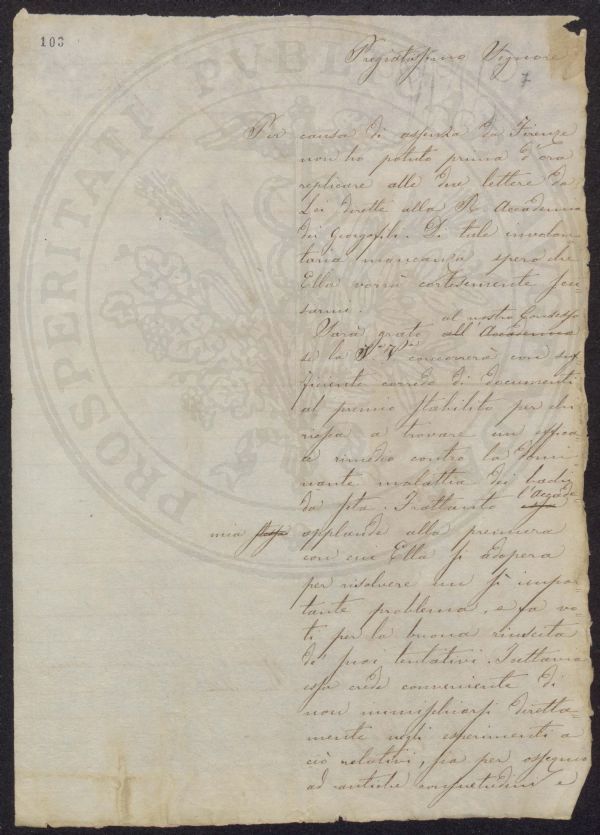 103
Pregiatissimo Signore
7
Per causa di assenza da Firenze
non ho potuto prima d'ora
replicare alle due lettere da
Lei dirette alla R. Accademia
dei Georgofili. Di tale involon-
taria mancanza spero che
Ella vorrà cortesemente scu-
sarmi.
al nostro Consesso
Sarà grato all'Accademia
se la S.a V.a concorrerà con suf
ficiente corredo di documenti
al premio stabilito per chi
riesca a trovare un effica-
ce rimedio contro la domi-
nante malattia dei bachi
da seta. Frattanto l'Accade-
mia applaude alla premura
con cui Ella si adopera
per risolvere un sì impor-
tante problema, e fa vo-
ti per la buona riuscita
de' suoi tentativi. Tuttavia
essa crede conveniente di
non immischiarsi diretta-
mente negli esperimenti a
ciò relativi, sia per ossequio
ad antiche consuetudini e
PROSPERITATI PVBLI